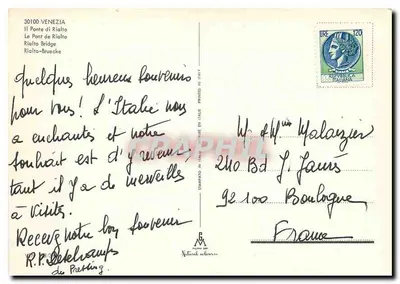 30100 VENEZIA
Il Ponte di Rialto
Le Pont de Rialto
Rialto Bridge
Rialto-Bruecke
quelques heureux souvenirs
pour vous! L'Italie nous
a enchantés et notre
souhait est d'y revenir
tant il y a de merveilles
à visiter.
Recevez notre bon souvenir
R.P. Deschamps
du Pressing
LIRE 120
M & Mme Malaizier
240 Bd J. Jaurès
92.100 Boulogne
France